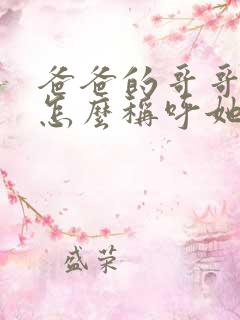 爸爸的哥哥
怎麼稱呼她
盛荣